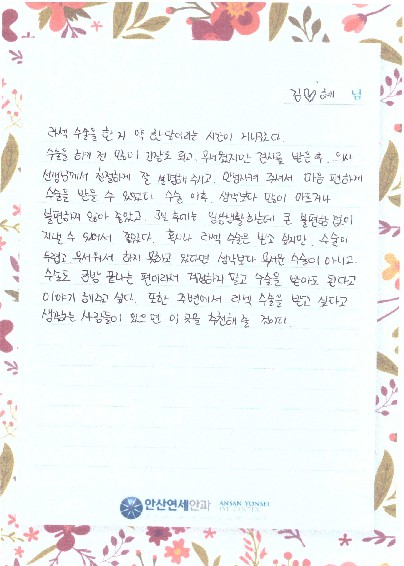 김♡혜 님
라섹 수술을 한 지 약 한 달이라는 시간이 지나갔다.
수술을 하기 전 많이 긴장도 되고, 무서웠지만 검사를 받은 후, 의사
선생님께서 친절하게 잘 설명해 주시고, 안심시켜 주셔서 마음 편하게
수술을 받을 수 있었다. 수술 이후, 생각보다 많이 아프거나
불편하지 않아 좋았고, 3일 후에는 일상생활하는데 큰 불편함 없이
지낼 수 있어서 좋았다. 혹시나 라섹 수술은 받고 싶지만, 수술이
두렵고 무서워서 하지 못하고 있다면 생각보다 무서운 수술이 아니고,
수술도 금방 끝나는 편이라서 걱정하지 말고 수술을 받아도 된다고
이야기 해주고 싶다. 또한 주변에서 라섹 수술을 받고 싶다고
생각하는 사람들이 있으면 이 곳을 추천해 줄 것이다.
안산연세안과 ANSAN YONSEI
EYE CENTER